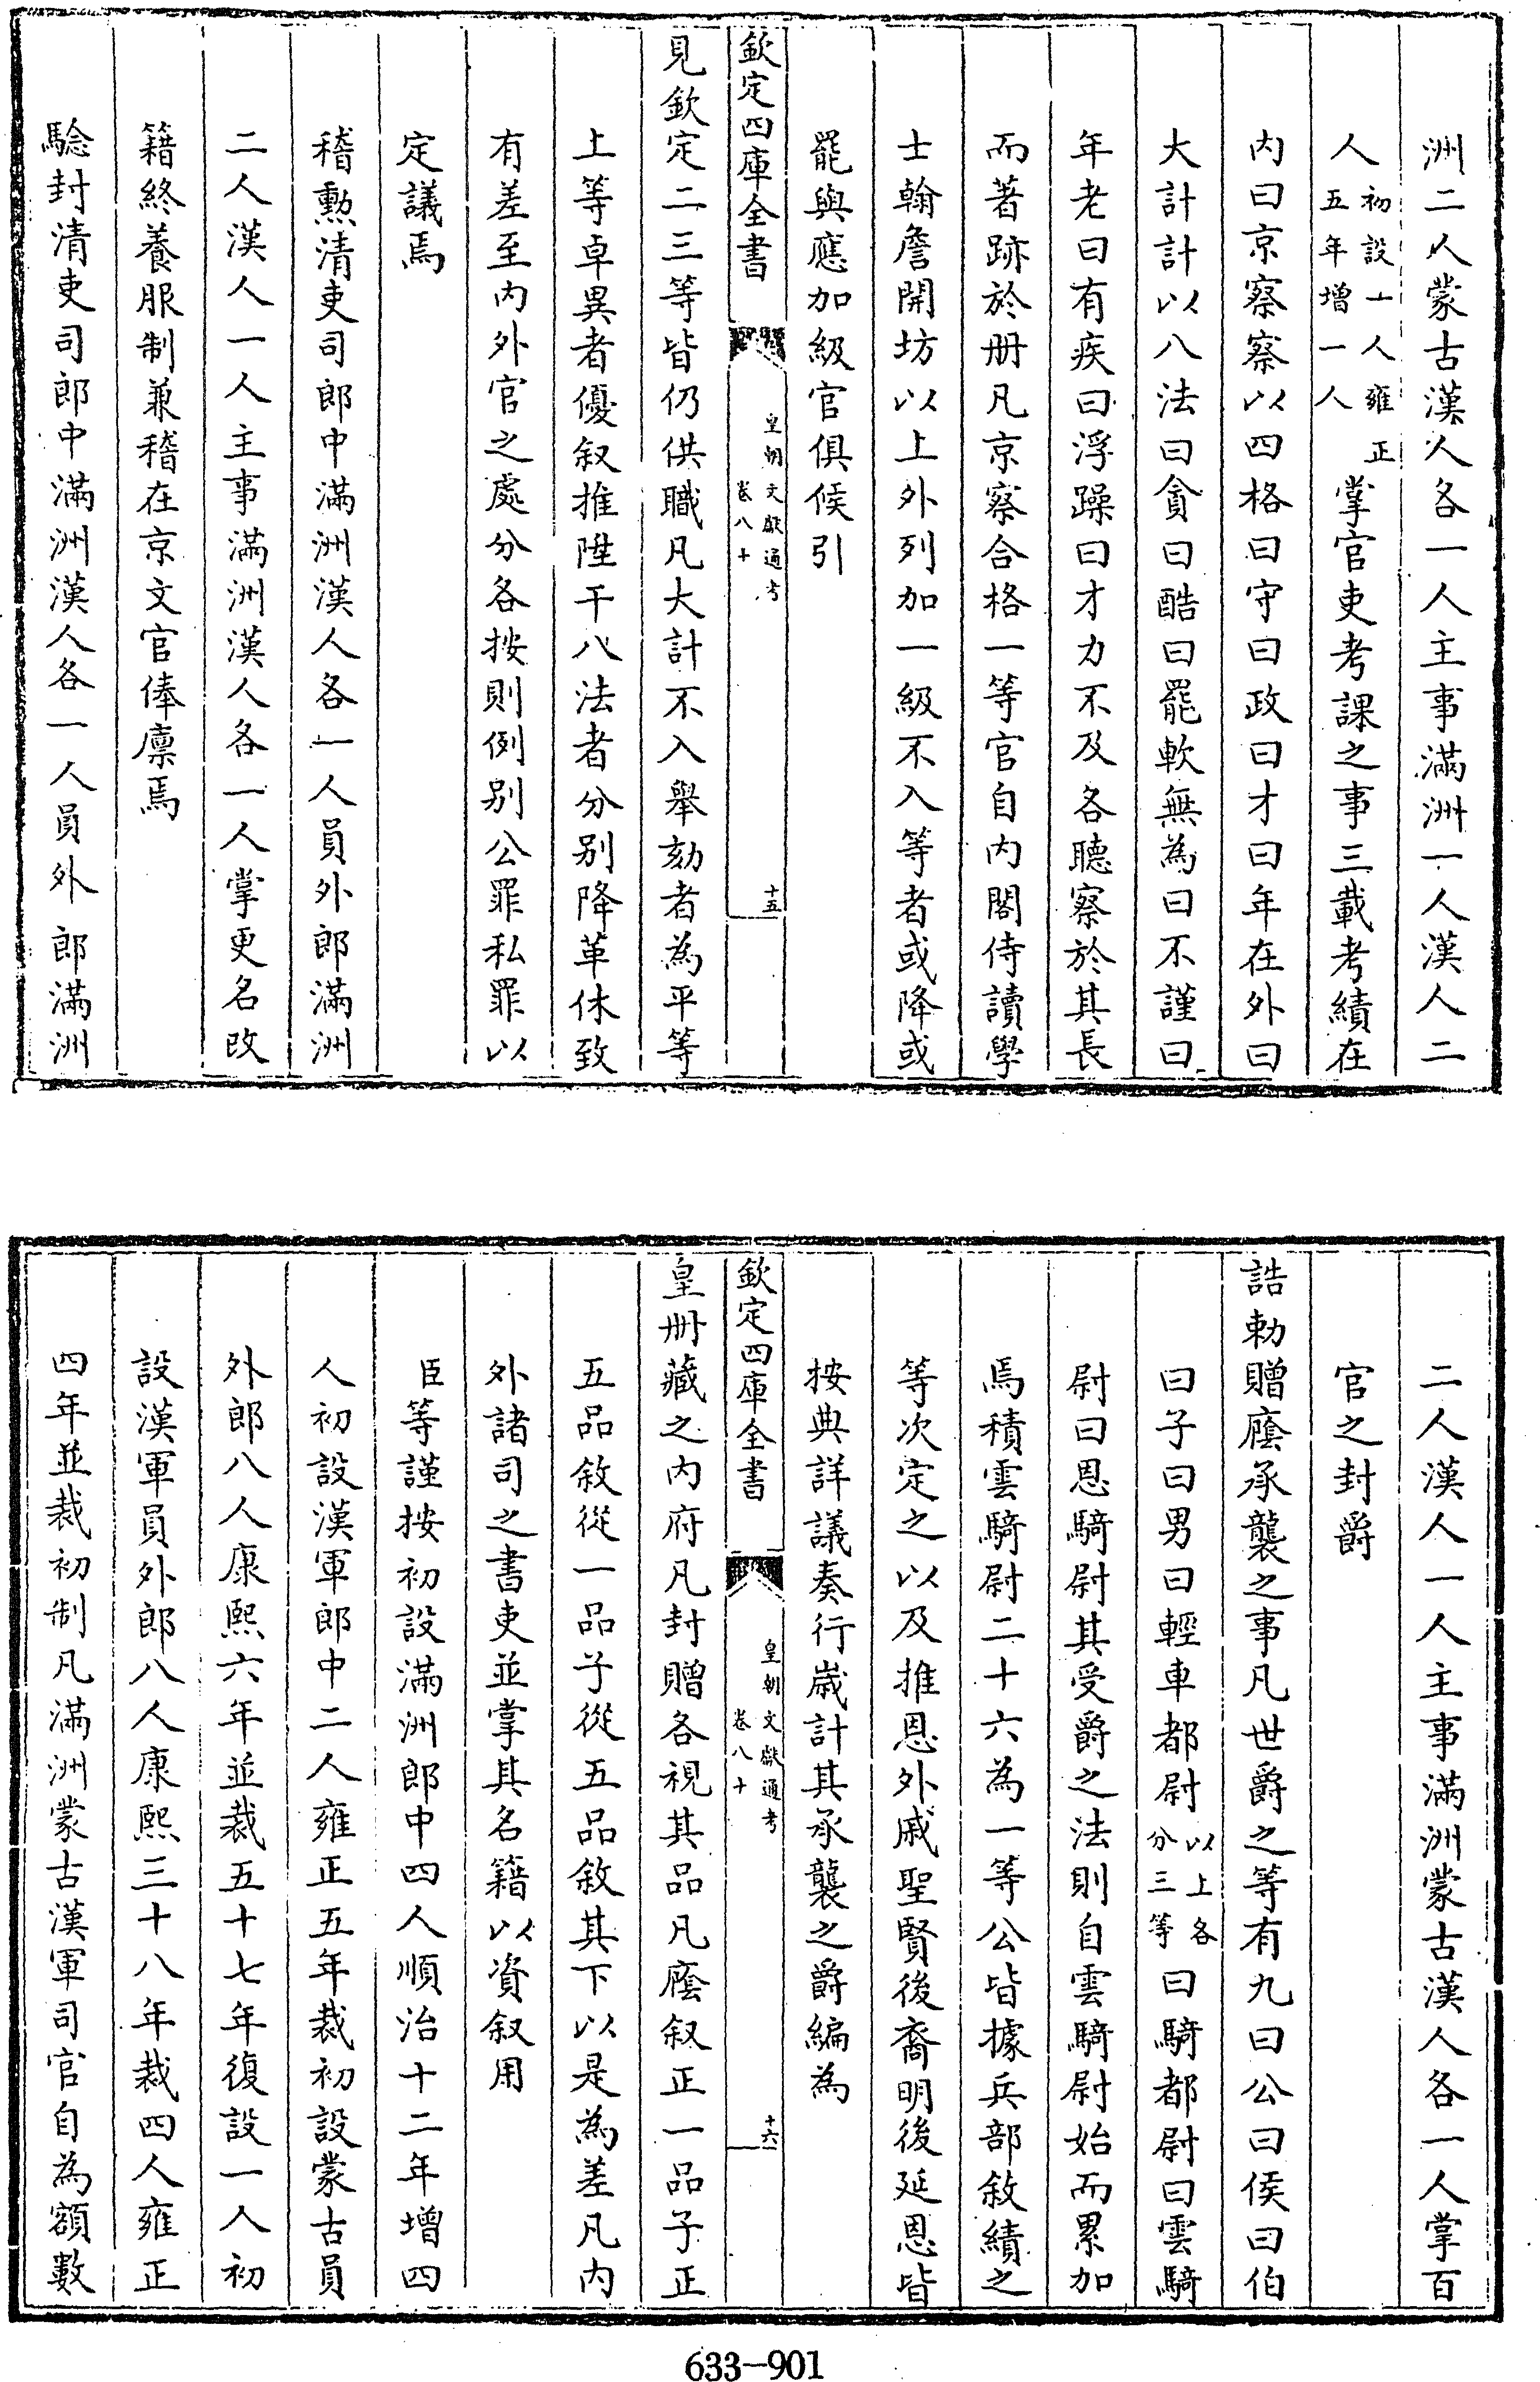 洲二人蒙古漢人各一人主事滿洲一人漢人二
人初設一人雍正五年增一人掌官吏考課之事三載考績在
内曰京察察以四格曰守曰政曰才曰年在外曰
大計計以八法曰貪曰酷曰罷軟無為曰不謹曰
年老曰有疾曰浮躁曰才力不及各聽察於其長
而著跡於册凡京察合格一等官自内閣侍讀學
士翰詹開坊以上外列加一級不入等者或降或
罷與應加級官俱候引
欽定四庫全書
皇朝文獻通考
卷八十
十五
見欽定二三等皆仍供職凡大計不入舉劾者為平等
上等卓異者優叙推陞干八法者分别降革休致
有差至内外官之處分各按則例别公罪私罪以
定議焉
稽勲清吏司郎中滿洲漢人各一人員外郎滿洲
二人漢人一人主事滿洲漢人各一人掌更名改
籍終養服制兼稽在京文官俸廪焉
騐封清吏司郎中滿洲漢人各一人員外郎滿洲
二人漢人一人主事滿洲蒙古漢人各一人掌百
官之封爵
誥勅贈廕承襲之事凡世爵之等有九曰公曰侯曰伯
曰子曰男曰輕車都尉以上各分三等曰騎都尉曰雲騎
尉曰恩騎尉其受爵之法則自雲騎尉始而累加
焉積雲騎尉二十六為一等公皆據兵部敘績之
等次定之以及推恩外戚聖賢後裔明後延恩皆
按典詳議奏行嵗計其承襲之爵編為
欽定四庫全書
皇朝文獻通考
卷八十
十六
皇册藏之内府凡封贈各視其品凡廕叙正一品子正
五品敘從一品子從五品敘其下以是為差凡内
外諸司之書吏並掌其名籍以資叙用
臣等謹按初設滿洲郎中四人順治十二年增四
人初設漢軍郎中二人雍正五年裁初設蒙古員
外郎八人康熙六年並裁五十七年復設一人初
設漢軍員外郎八人康熙三十八年裁四人雍正
四年並裁初制凡滿洲蒙古漢軍司官自為額數
633-901